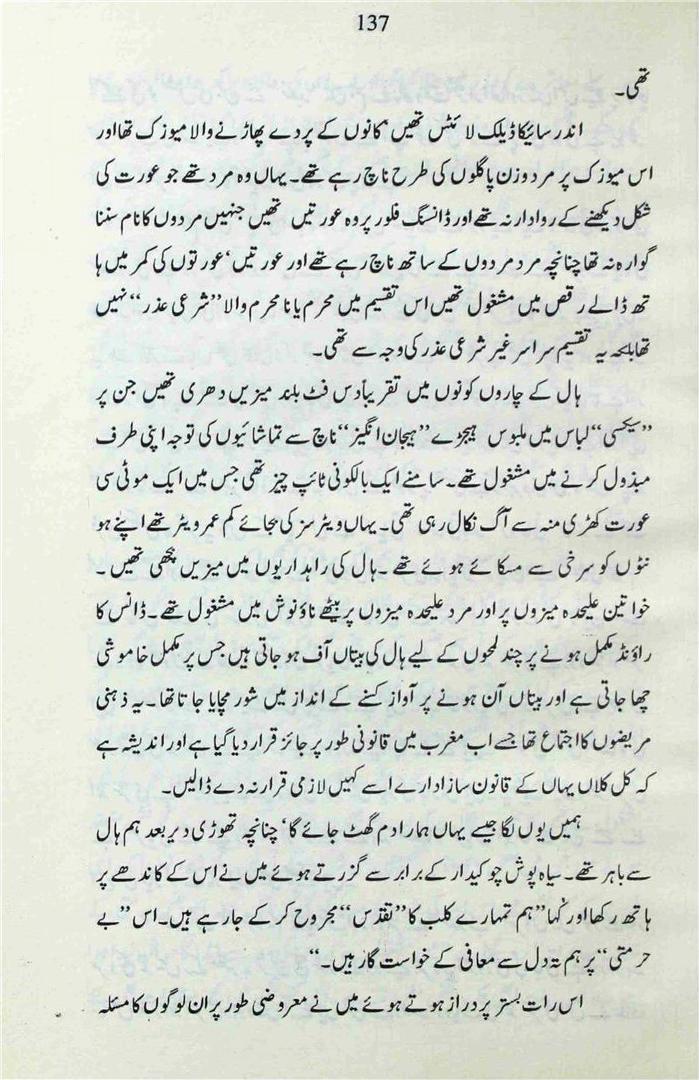 137
تھی۔
اندر سائیکاڈیلک لائٹس تھیں‘ کانوں کے پردے پھاڑنے والا میوزک تھا اور
اس میوزک پر مرد و زن پاگلوں کی طرح ناچ رہے تھے۔ یہاں وہ مرد تھے جو عورت کی
شکل دیکھنے کے روادار نہ تھے اور ڈانسنگ فلور پر وہ عورتیں تھیں جنہیں مردوں کا نام سننا
گوارہ نہ تھا چنانچہ مرد مردوں کے ساتھ ناچ رہے تھے اور عورتیں‘ عورتوں کی کمر میں ہا
تھ ڈالے رقص میں مشغول تھیں اس تقسیم میں محرم یا نا محرم والا ’’شرعی عذر‘‘ نہیں
تھا بلکہ یہ تقسیم سراسر غیر شرعی عذر کی وجہ سے تھی۔
ہال کے چاروں کونوں میں تقریباً دس فٹ بلند میزیں دھری تھیں جن پر
’’سیکسی‘‘ لباس میں ملبوس ہیجڑے ’’ہیجان انگیز‘‘ ناچ سے تماشائیوں کی توجہ اپنی طرف
مبذول کرنے میں مشغول تھے۔ سامنے ایک بالکونی ٹائپ چیز تھی جس میں ایک موٹی سی
عورت کھڑی منہ سے آگ نکال رہی تھی۔ یہاں ویٹرسز کی بجائے کم عمر ویٹر تھے اپنے ہو
نٹوں کو سرخی سے مسکائے ہوئے تھے۔ ہال کی راہداریوں میں میزیں بچھی تھیں۔
خواتین علیحدہ میزوں پر اور مرد علیحدہ میزوں پر بیٹھے ناؤنوش میں مشغول تھے۔ ڈانس کا
راؤنڈ مکمل ہونے پر چند لمحوں کے لیے ہال کی بیتاں آف ہو جاتی ہیں جس پر مکمل خاموشی
چھا جاتی ہے اور بیتاں آن ہونے پر آواز کسنے کے انداز میں شور مچایا جاتا تھا۔ یہ ذہنی
مریضوں کا اجتماع تھا جسے اب مغرب میں قانونی طور پر جائز قرار دیا گیا ہے اور اندیشہ ہے
کہ کل کلاں یہاں کے قانون ساز ادارے اسے کہیں لازمی قرار نہ دے ڈالیں۔
ہمیں یوں لگا جیسے یہاں ہمارا دم گھٹ جائے گا‘ چنانچہ تھوڑی دیر بعد ہم ہال
سے باہر تھے۔ سیاہ پوش چوکیدار کے برابر سے گزرتے ہوئے میں نے اس کے کاندھے پر
ہاتھ رکھا اور کہا ’’ہم تمہارے کلب کا ’’تقدس‘‘ مجروح کر کے جا رہے ہیں۔ اس ’’بے
حرمتی‘‘ پر ہم تہ دل سے معافی کے خواست گار ہیں۔‘‘
اس رات بستر پر دراز ہوتے ہوئے میں نے معروضی طور پر ان لوگوں کا مسئلہ